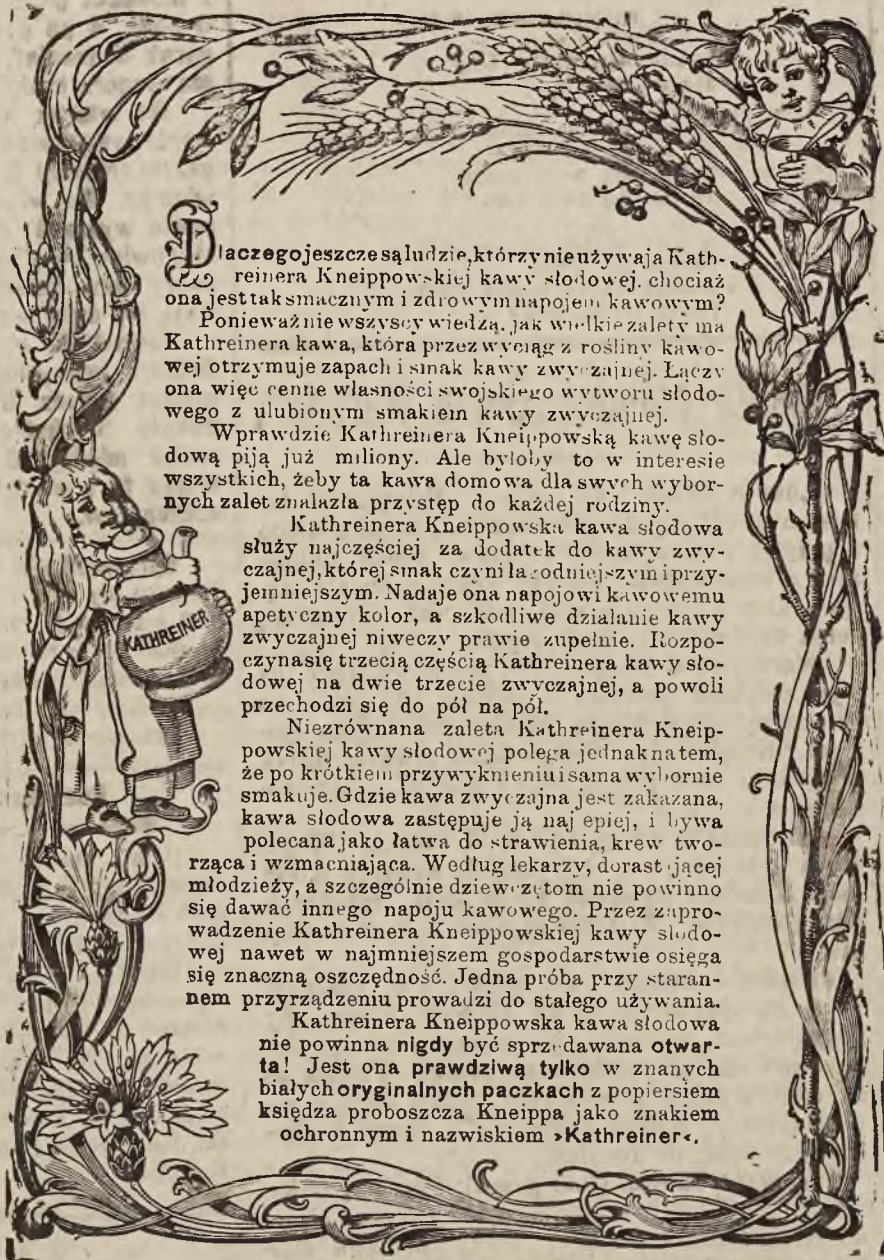 Dlaczego jeszcze są ludzie, którzy nie używają Kath-
reinera Kneippowskiej kawy słodowej, chociaż
ona jest tak smacznym i zdrowym napojem kawowym?
Ponieważ nie wszyscy wiedzą, jak wielkie zalety ma
Kathreinera kawa, która przez wyciąg z rośliny kawo-
wej otrzymuje zapach i smak kawy zwyczajnej. Łączy
ona więc cenne własności swojskiego wytworu słodo-
wego z ulubionym smakiem kawy zwyczajnej.
Wprawdzie Kathreinera Kneippowską kawę sło-
dową piją już miliony. Ale byłoby to w interesie
wszystkich, żeby ta kawa domowa dla swych wybor-
nych zalet znalazła przystęp do każdej rodziny.
Kathreinera Kneippowska kawa słodowa
służy najczęściej za dodatek do kawy zwy-
czajnej, której smak czyni łagodniejszym i przy-
jemniejszym. Nadaje ona napojowi kawowemu
apetyczny kolor, a szkodliwe działanie kawy
zwyczajnej niweczy prawie zupełnie. Rozpo-
czyna się trzecią częścią Kathreinera kawy sło-
dowej na dwie trzecie zwyczajnej, a powoli
przechodzi się do pół na pół.
KATHREINER
Niezrównana zaleta Kathreinera Kneip-
powskiej kawy słodowej polega jednak na tem,
że po krótkiem przywyknieniu i sama wybornie
smakuje. Gdzie kawa zwyczajna jest zakazana,
kawa słodowa zastępuje ją najlepiej, i bywa
polecana jako łatwa do strawienia, krew two-
rząca i wzmacniająca. Według lekarzy, dorastającej
młodzieży, a szczególnie dziewczętom nie powinno
się dawać innego napoju kawowego. Przez zapro-
wadzenie Kathreinera Kneippowskiej kawy słodo-
wej nawet w najmniejszem gospodarstwie osięga
się znaczną oszczędność. Jedna próba przy staran-
nem przyrządzeniu prowadzi do stałego używania.
Kathreinera Kneippowska kawa słodowa
nie powinna nigdy być sprzedawana otwar-
ta! Jest ona prawdziwą tylko w znanych
białych oryginalnych paczkach z popiersiem
księdza proboszcza Kneippa jako znakiem
ochronnym i nazwiskiem »Kathreiner«.